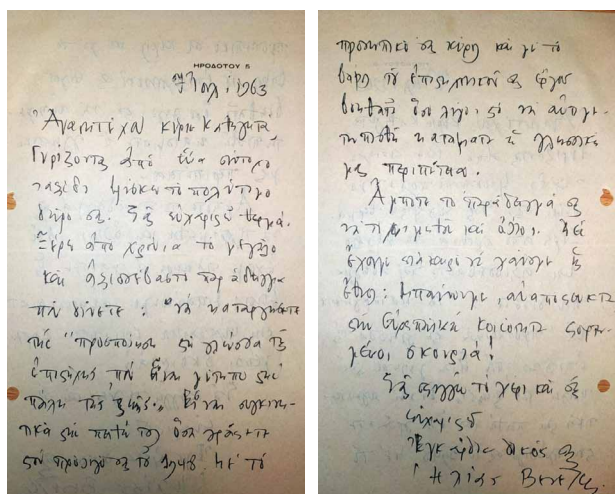 ΗΡΟΔΟΤΟΥ 5
7 Ἰουλ. 1963
Ἀγαπητέ μου κύριε Καθηγητά
Γυρίζοντας ἀπό ἕνα σύντομο
ταξίδι βρίσκω τό πολύτιμο
δῶρο σας. Σᾶς εὐχαριστῶ θερμά.
Ξέρω ἀπό χρόνια τό μεγάλο
καί ἀξιοσέβαστο παράδειγμα
πού δίνετε: νά καταργήσετε
τῆς "προσποίηση στή γλώσσα τῆς
ἐπιστήμης πού εἶναι μέτωπο στήν
πάλη τῆς ζωῆς". Εἶναι συγκινη-
τικά στήν πίστη τους ὅσα γράφετε
στόν πρόλογό σας τοῦ 1948. Μέ τό
προσωπικό σας κύρος καί μέ τό
βάρος τοῦ ἐπιστημονικοῦ σας ἔργου
βοηθᾶτε ὅσο λίγοι, στό νά
κατάματα ἡ γλωσσική
μας περιπέτεια.
Ἄμποτε τό παράδειγμά σας
νά τό μιμηθοῦν καί ἄλλοι.
ἔχουμε πιά καιρό νά χάνουμε
ἔθνος: Μπαίνουμε, ἀναπόφευκτα
στήν Εὐρωπαϊκή κοινότητα
σκουριά!
Σᾶς σφίγγω τό χέρι καί σᾶς
εὐχαριστῶ
Ἐγκάρδια δικός σας
Ἠλίας Βενέζης